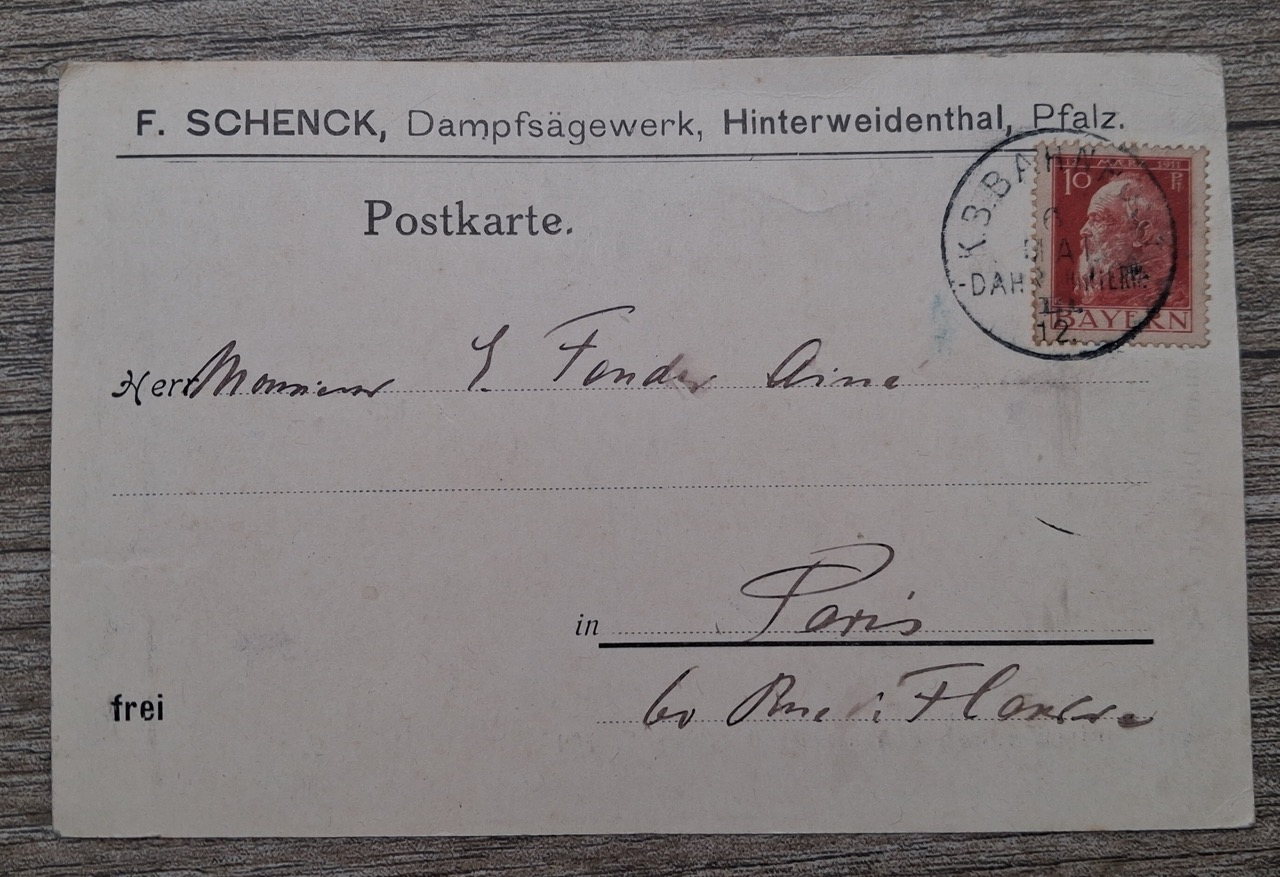 F. SCHENCK, Dampfsägewerk, Hinterweidenthal, Pfalz.
12. MÄRZ 1911
10 Pf
K.B.BAHN
-DAHN
12.
BAYERN
Postkarte.
Herr Monsieur Fonder Ainé
in Paris
60 Rue de Flandre
frei